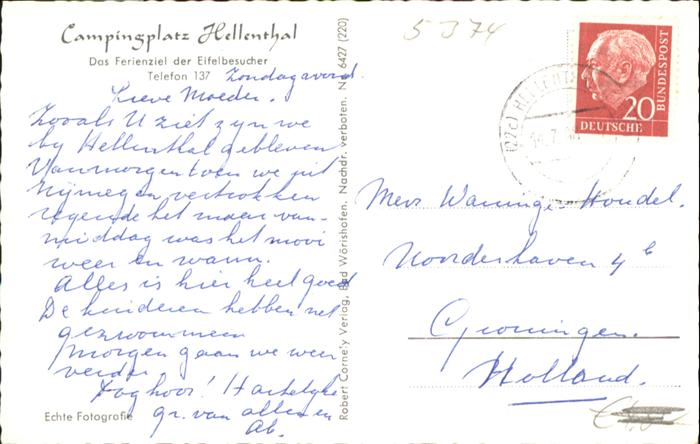 5374
Campingplatz Hellenthal
Das Ferienziel der Eifelbesucher
Telefon 137
Zondagavond.
Lieve Moeder.
Zooals U ziet zijn we
by Hellenthal gebleven
Vanmorgen toen we uit
Nijmegen vertrokken
regende het maar van-
middag was het mooi
weer en warm.
Alles is hier heel goed
De kinderen hebben net
gezwommen
Morgen gaan we weer
verder.
Dag hoor! Hartelijke
gr. van allen en
Ab.
Echte Fotografie
Robert Corne'y Verlag, Bad Wörishofen. Nachdr. verboten. Nr. 6427 (220)
(22c) HELLENTHAL
20
DEUTSCHE
BUNDESPOST
Mevr Wanninge-Hondel.
Noorderhaven 4 b
Groningen.
Holland.